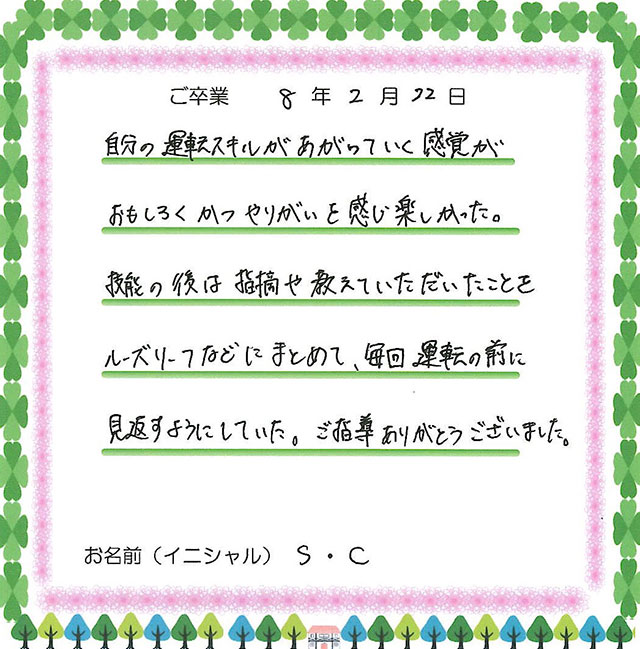 ご卒業 8 年 2 月 22 日
自分の運転スキルがあがっていく感覚が
おもしろくかつやりがいを感じ楽しかった。
技能の後は指摘や教えていただいたことを
ルーズリーフなどにまとめて、毎回運転の前に
見返すようにしていた。ご指導ありがとうございました。
お名前（イニシャル） S・C